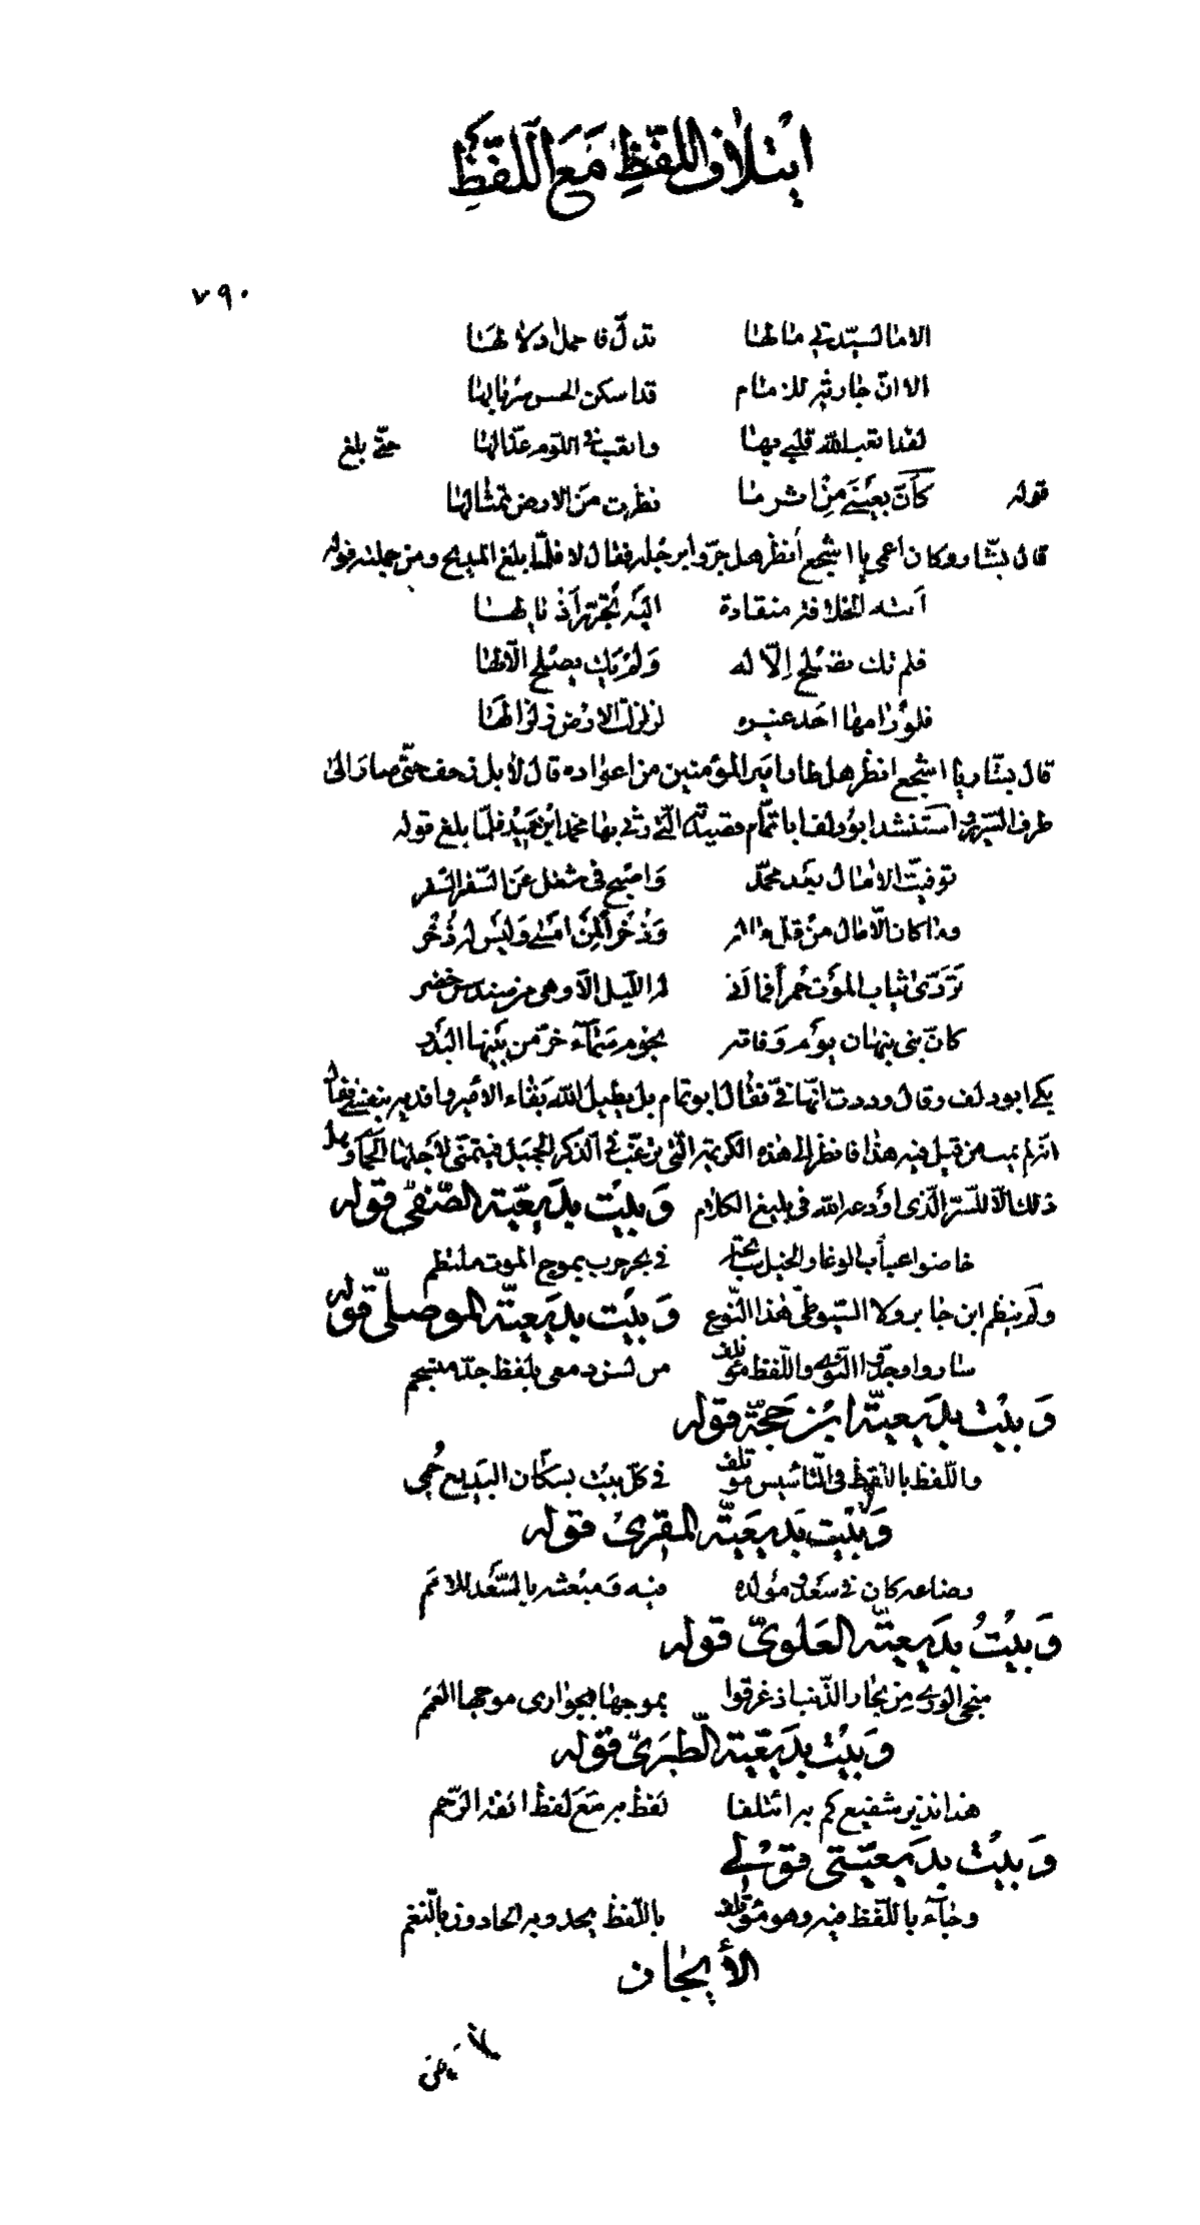 ائتلاف اللفظ مع اللفظ
٧٩٠
الا ما لسيدتي ما لها تدل فاحمل دلالها
الا ان جارية للامام قد اسكن الحسن سربالها
لقد اتعب الله قلبي بها واتعب في اللوم عذالها حتى بلغ
قوله كأن بعيني من اشر ما نظرت من الارض تمثالها
قال بشار وكان اعمى يا اشجع أنظر هل جروا برجله فقال لا فلما بلغ المديح ومن جملته قوله
أتته الخلافة منقادة اليه تجرر أذيالها
فلم تك تصلح إلا له ولم يك يصلح الا لها
فلو رامها احد غيره لزلزلت الارض زلزالها
قال بشار يا اشجع انظر هل طار امير المؤمنين من اعواده قال لا بل زحف حتى صار الى
طرف السرير واستنشد ابو دلف ابا تمام قصيدته التي رثى بها محمد ابن حميد فلما بلغ قوله
توفيت الامال بعد محمد واصبح في شغل عن السفر السفر
وما كان الا مال من قل ماله وذخرا لمن امسى وليس له ذخر
تردى ثياب الموت حمرا فما اتى لها الليل الا وهي من سندس خضر
كان بني نبهان يوم وفاته نجوم سماء خر من بينها البدر
بكى ابو دلف وقال وددت انها في فقال ابو تمام بل يطيل الله بقاء الامير وافديه بنفسي فقال
انه لم يمت من قيل فيه هذا فانظر الى هذه الكريمة التي ترغب في الذكر الجميل فيتمنى لاجلها الحمام وهل
ذلك الا للسر الذي اودعه الله في بليغ الكلام وبيت بديعية الصفي قوله
خاضوا عباب الوغا والخيل سابحة في بحر حرب بموج الموت ملتطم
ولم ينظم ابن جابر ولا السيوطي هذا النوع وبيت بديعية الموصلي قوله
ساروا وجدوا النوى واللفظ مؤتلف من لسن دمعي بلفظ جد منسجم
وبيت بديعية ابن حجة قوله
واللفظ باللفظ في التأسيس مؤتلف في كل بيت بسكان البديع حمي
وبيت بديعية المقري قوله
رضاعه كان في سعد ومولده فيه ومبعثه بالسعد للامم
وبيت بديعية العلوي قوله
منجي الورى من بحار الذنب اذ غرقوا بموجها فجوارى موجها العمم
وبيت بديعية الطبري قوله
هذا نذير شفيع كم به ائتلفا لفظ به مع لفظ انفه الرحم
وبيت بديعيتي قولي
وجاء باللفظ فيه وهو مؤتلف باللفظ يحدو به الحادون بالنغم
الأيجاز